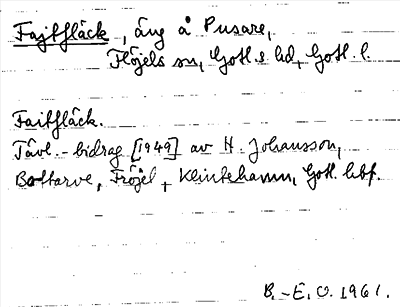 Fajtfläck, äng å Pusarve,
Fröjels sn, Gotl. s hd, Gotl. l.
Faitfläck.
Tävl.-bidrag [1949] av H. Johansson,
Bottarve, Fröjel, Klintehamn, Gotl. hbf.
B.-E. O. 1961.